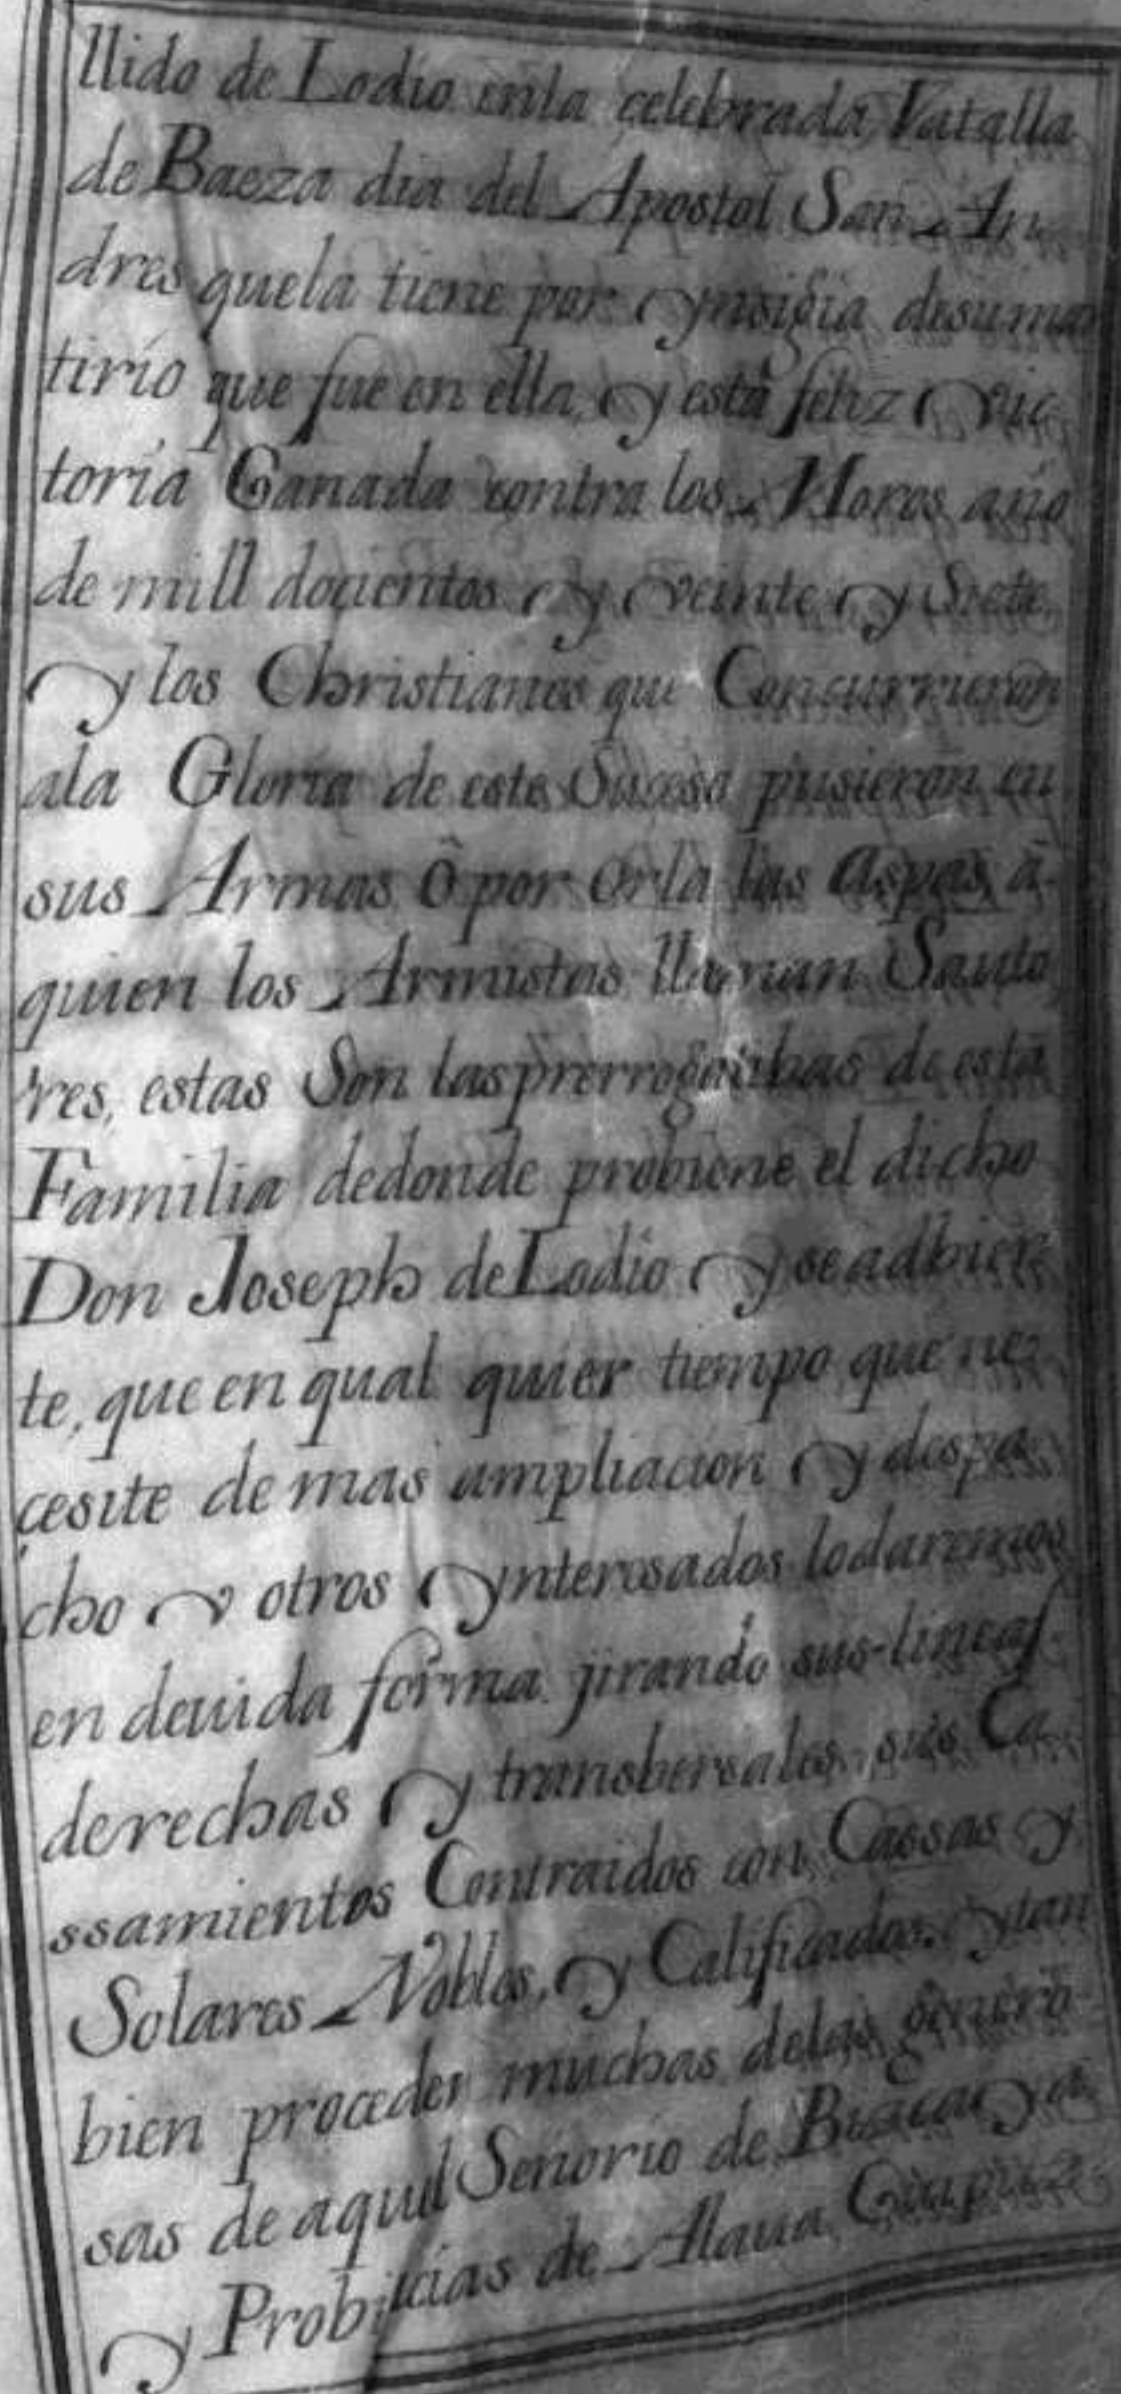 llido de Lodio enla celebrada Vatalla
de Baeza dia del Apostol San An
dres quela tiene por ynsigia desumar
tirio que fue en ella y esta feliz vic
toria Ganada contra los Moros año
de mill docientos y veinte y Siete
y los Christianos que Concurrieron
ala Gloria de este Suceso pusieron en
sus Armas ô por orla las aspas à
quien los Armistas llaman Sauto
res, estas Son las prerrogatibas de esta
Familia dedonde probiene el dicho
Don Joseph de Lodio y seadbier
te, que en qual quier tiempo que ne
cesite de mas ampliacion y despa
cho v otros ynteresados lo daremos
en deuida forma jirando sus lineas
derechas y transbersales, sus Ca
ssamientos Contraidos con Cassas y
Solares Nobles, y Calificados, ytan
bien proceder muchas delas genero
sas de aquel Señorio de Biscaya
y Probincias de Alaua